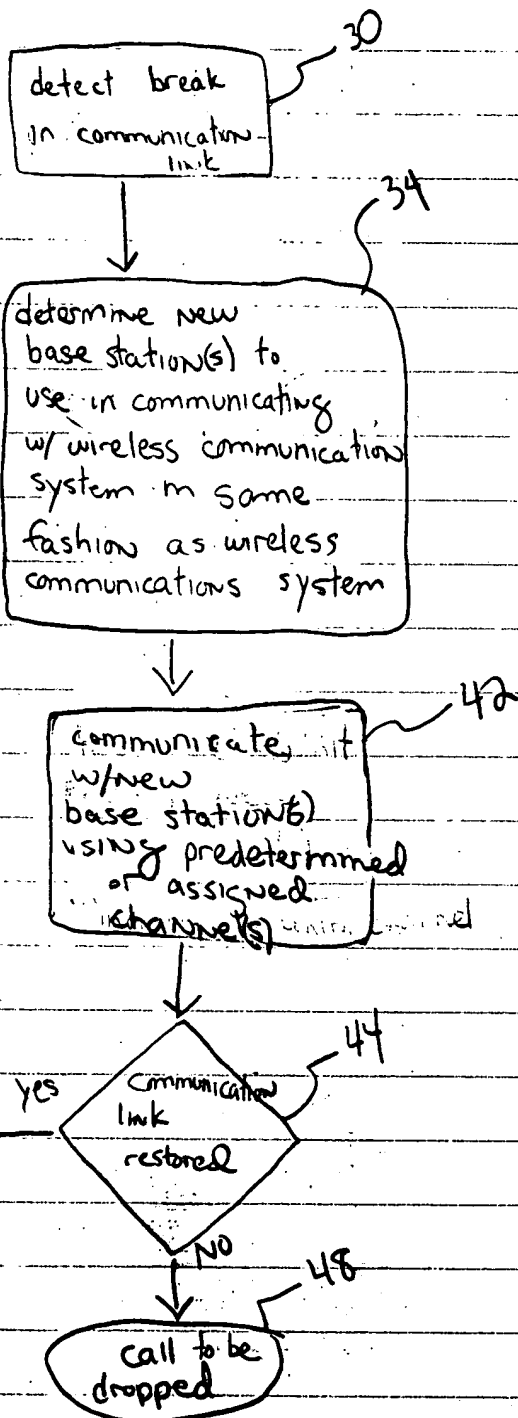 30
detect break
in communication
link
34
determine new
base station(s) to
use in communicating
w/ wireless communication
system in same
fashion as wireless
communications system
42
communicate,
w/new
base station(s)
using predetermined
or assigned
channel(s)
44
yes
communication
link
restored
NO
48
call to be
dropped